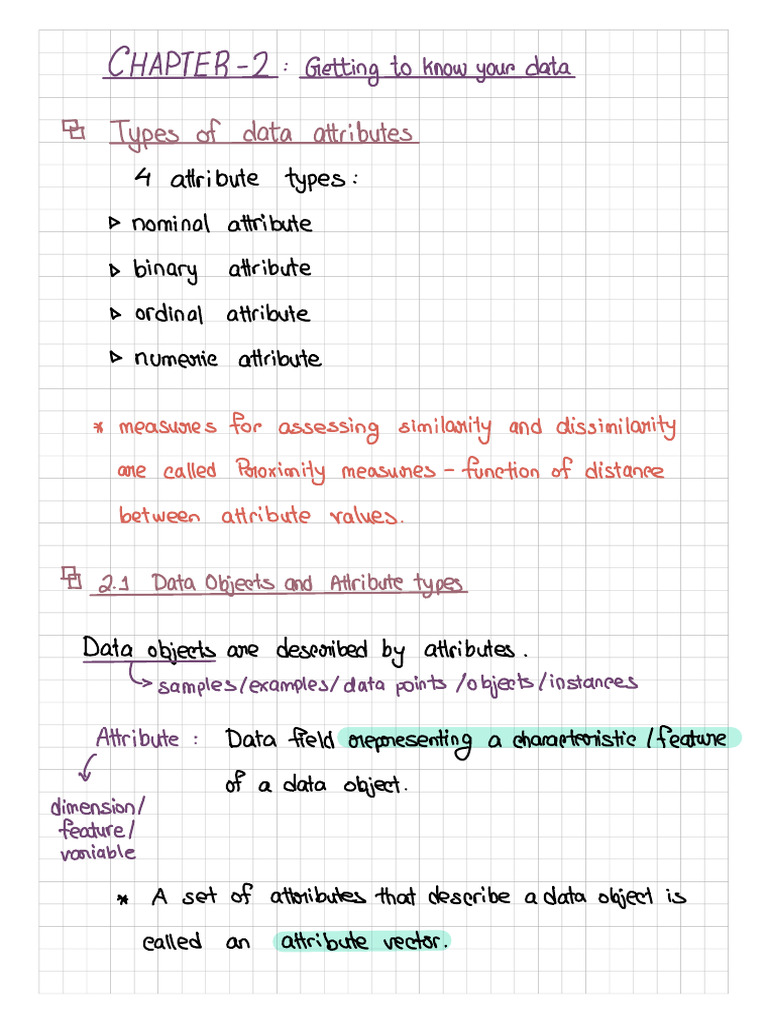 CHAPTER-2 : Getting to know your data
Types of data attributes
4 attribute types:
nominal attribute
binary attribute
ordinal attribute
numeric attribute
* measures for assessing similarity and dissimilarity
are called Proximity measures - function of distance
between attribute values.
2.1 Data Objects and Attribute types
Data objects are described by attributes.
samples/examples/data points/objects/instances
Attribute : Data field representing a characteristic/feature
of a data object.
dimension/
feature/
variable
* A set of attributes that describe a data object is
called an attribute vector.